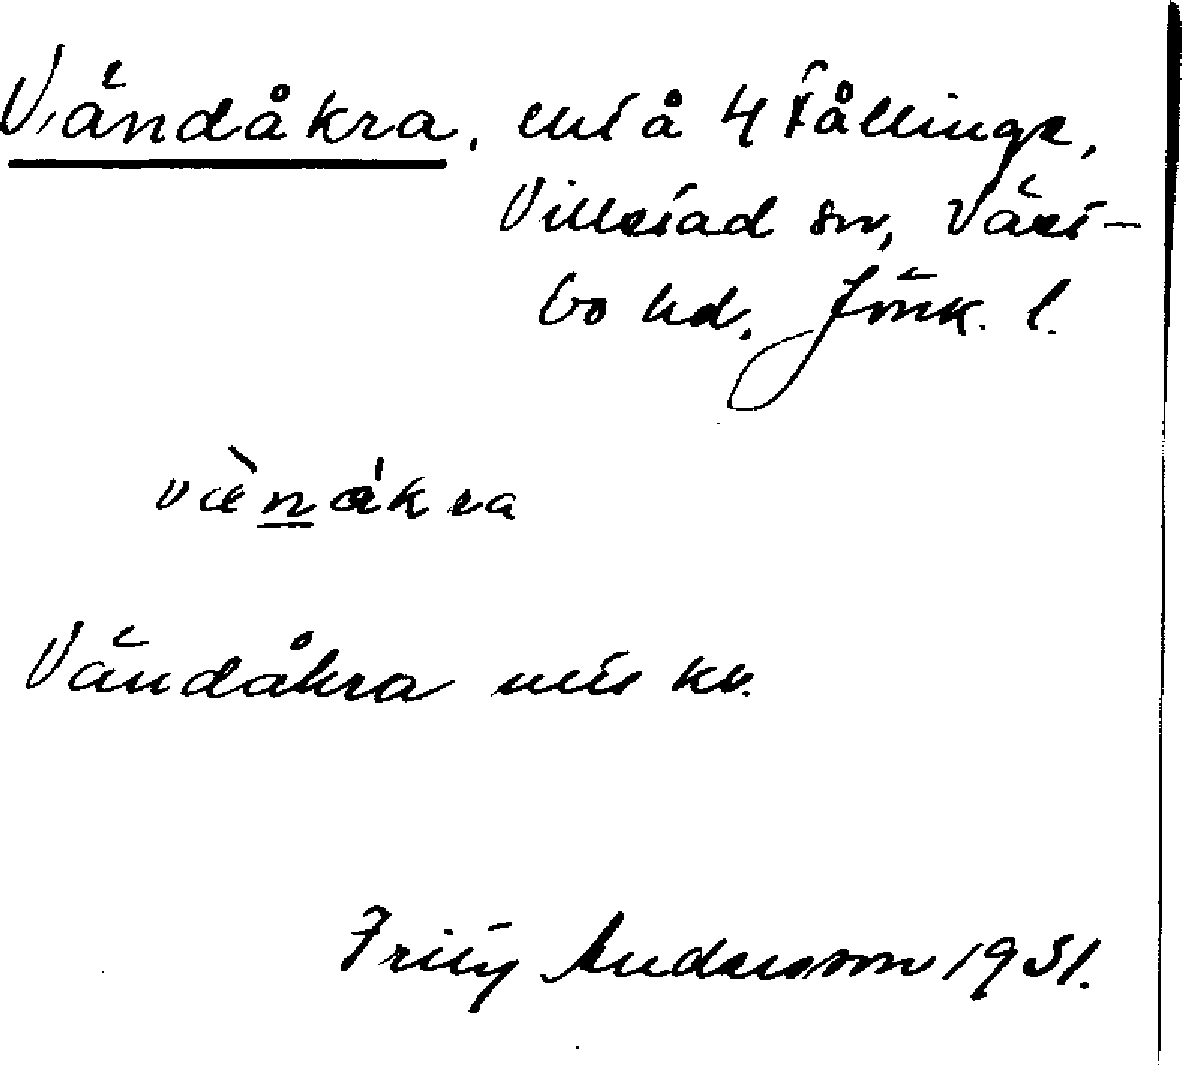 Vändåkra, uti å 4 Fållinge,
Villstad sn, Väst-
bo hd, Jönk. l.
vænåkra
Vändåkra
Fritz Andersson 1931.